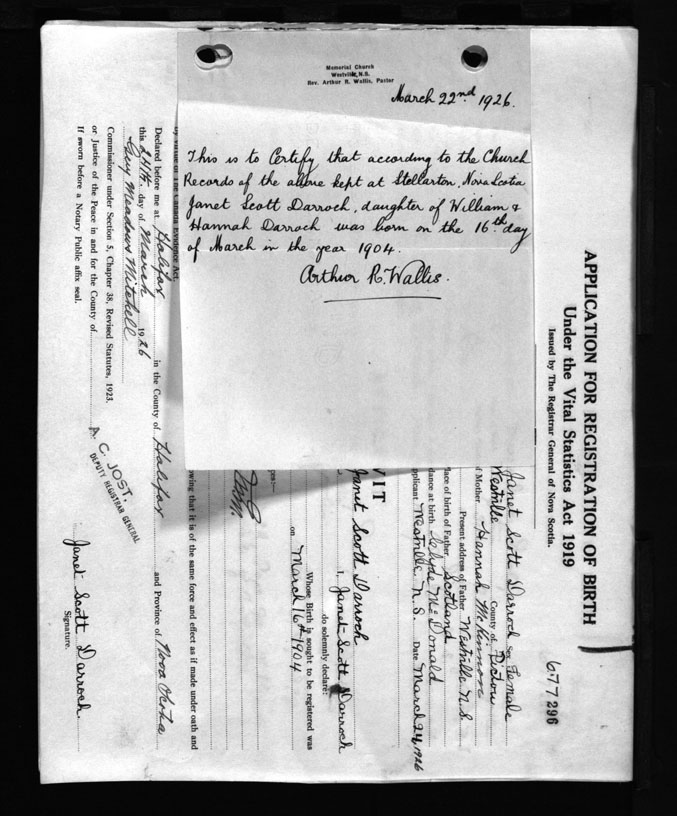 Memorial Church
Westville, N.S.
Rev. Arthur R. Wallis, Pastor
March 22nd 1926.
This is to Certify that according to the Church
Records of the above kept at Stellarton, Nova Scotia
Janet Scott Darroch, daughter of William &
Hannah Darroch was born on the 16th day
of March in the year 1904.
Arthur R. Wallis.
APPLICATION FOR REGISTRATION OF BIRTH
Under the Vital Statistics Act 1919
Issued by The Registrar General of Nova Scotia.
677296
Janet Scott Darroch Female
Westville County of Pictou
of Mother Hannah McKinnon
Present address of Father Westville N.S.
lace of birth of Father Scotland
dance at birth Clyde McDonald
pplicant Westville, N.S. Date March 24 1926
VIT
Janet Scott Darroch
I, Janet Scott Darroch
do solemnly declare:
Whose Birth is sought to be registered was
on March 16th 1904
owing that it is of the same force and effect as if made under oath and
by virtue of The Canada Evidence Act.
Declared before me at Halifax in the County of Halifax and Province of Nova Scotia
this 24th. day of March 1926
Guy Meadows Mitchell
Commissioner under Section 5, Chapter 38, Revised Statutes, 1923.
or Justice of the Peace in and for the County of
If sworn before a Notary Public affix seal.
A. C. JOST.
DEPUTY REGISTRAR GENERAL
Janet Scott Darroch
Signature.